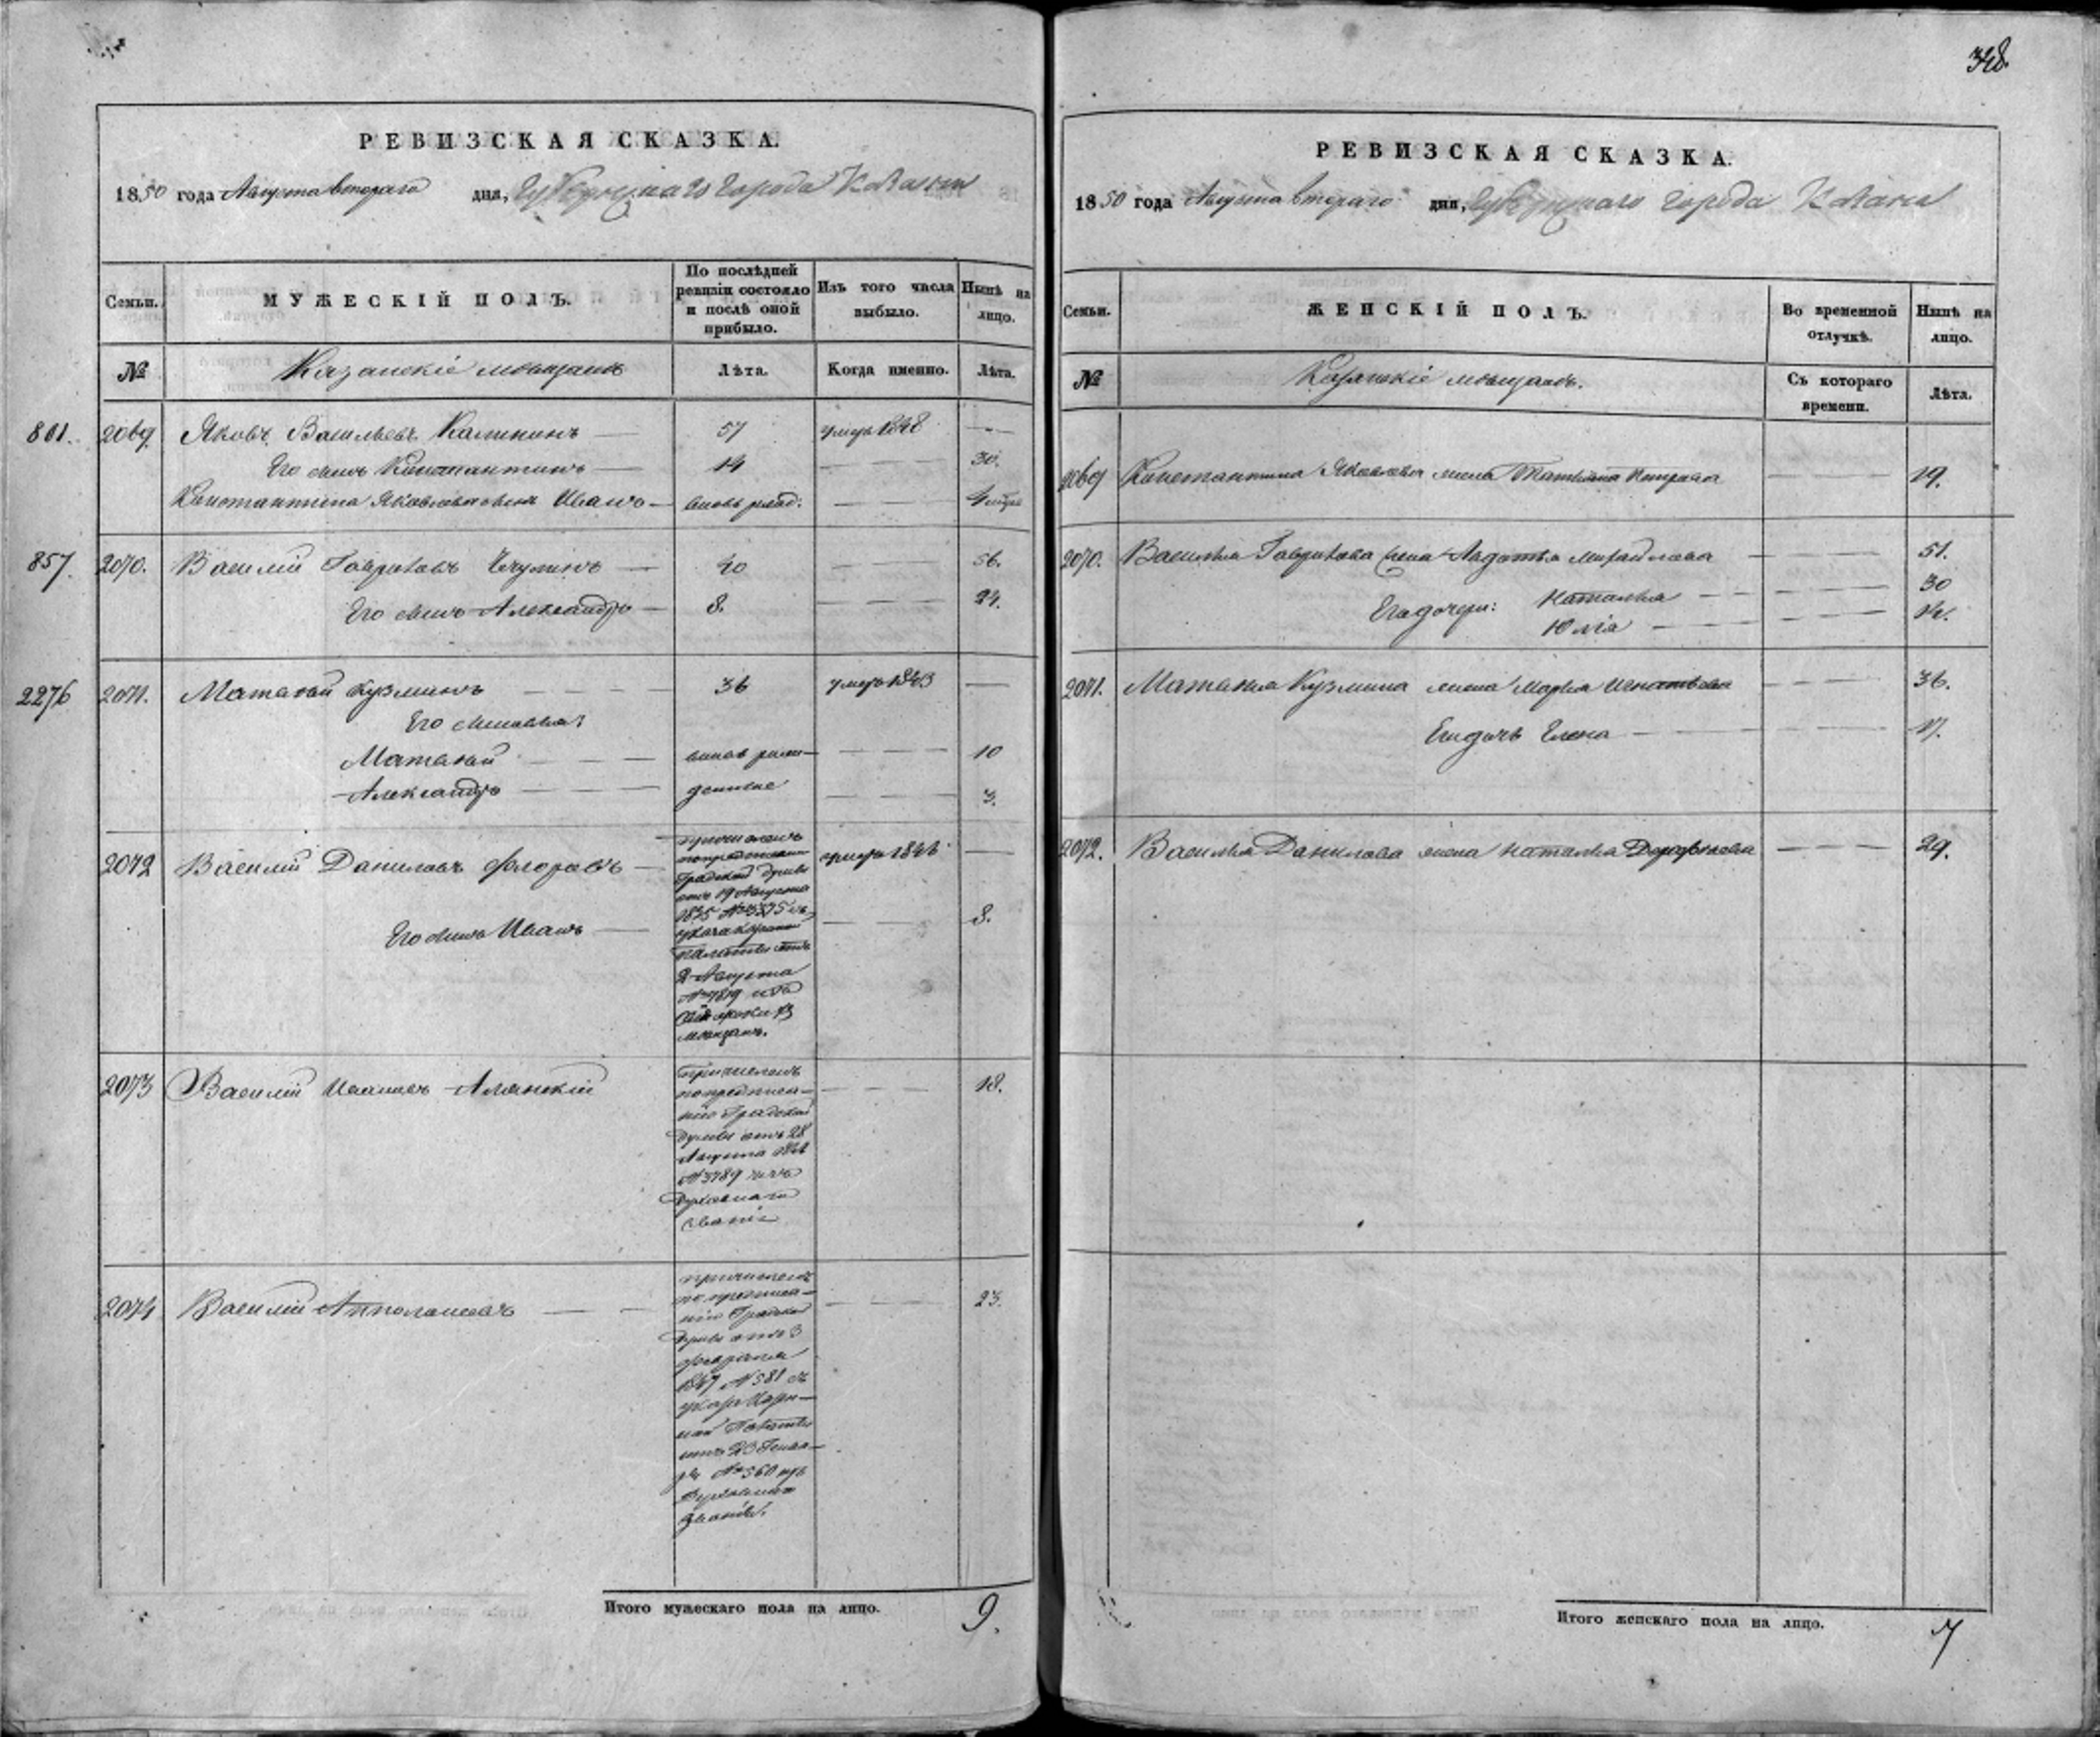 348.
РЕВИЗСКАЯ СКАЗКА.
1850 года Августа втораго дня, Губернскаго города Казани
Семьи.
МУЖЕСКІЙ ПОЛЪ.
По послѣдней ревизіи состояло и послѣ оной прибыло.
Изъ того числа выбыло.
Нынѣ на лицо.
№
Казанскіе мѣщане
Лѣта.
Когда именно.
Лѣта.
801. 2069 Яковъ Васильевъ Калининъ — 57 умеръ 1848 —
Его сынъ Константинъ — 14 — 30.
Константина Яковлева сынъ Иванъ — вновь рожд:
857. 2070. Василій Гавриловъ Чуминъ — 40 — 56.
Его сынъ Александръ — 8. — 24.
2276 2071. Матвей Кузминъ — 36 умеръ 1843 —
Его сыновья:
Матвей — вновь рож- — 10
Александръ — денные — 3.
2072 Василій Даниловъ Флоровъ — причисленъ умеръ 1846 —
Градской думы
отъ 19 Августа
1835 №
Его сынъ Иванъ — 8.
палаты отъ
2 Августа
№ 7819 изъ
мѣщанъ.
2073 Василій Ивановъ Алянскій причисленъ — 18.
по предписа-
нію Градской
Думы отъ 28
Августа
№ 3789 изъ
Духовнаго
званія
2074 Василій Апполоновъ — причисленъ — 23.
по предписа-
нію Градской
Думы отъ 3
февраля
1847 № 581 съ
ной Палаты
отъ 23 Генва-
ря № 560 изъ
Духовнаго
званія.
Итого мужескаго пола на лицо. 9.
РЕВИЗСКАЯ СКАЗКА.
1850 года Августа втораго дня, Губернскаго города Казани
Семьи.
ЖЕНСКІЙ ПОЛЪ.
Во временной отлучкѣ.
Нынѣ на лицо.
№
Казанскіе мѣщане.
Съ котораго времени.
Лѣта.
2069 Константина Яковлева жена Татьяна Петрова — 19.
2070. Василья Гаврилова жена Авдотья Михайлова — 51.
Его дочери: Наталья — 30
Юлія — 14.
2071. Матвея Кузмина жена Марья Игнатьева — 36.
Его дочь Елена — 17.
2072. Василья Данилова жена Наталья Дорофеева — 29.
Итого женскаго пола на лицо. 7